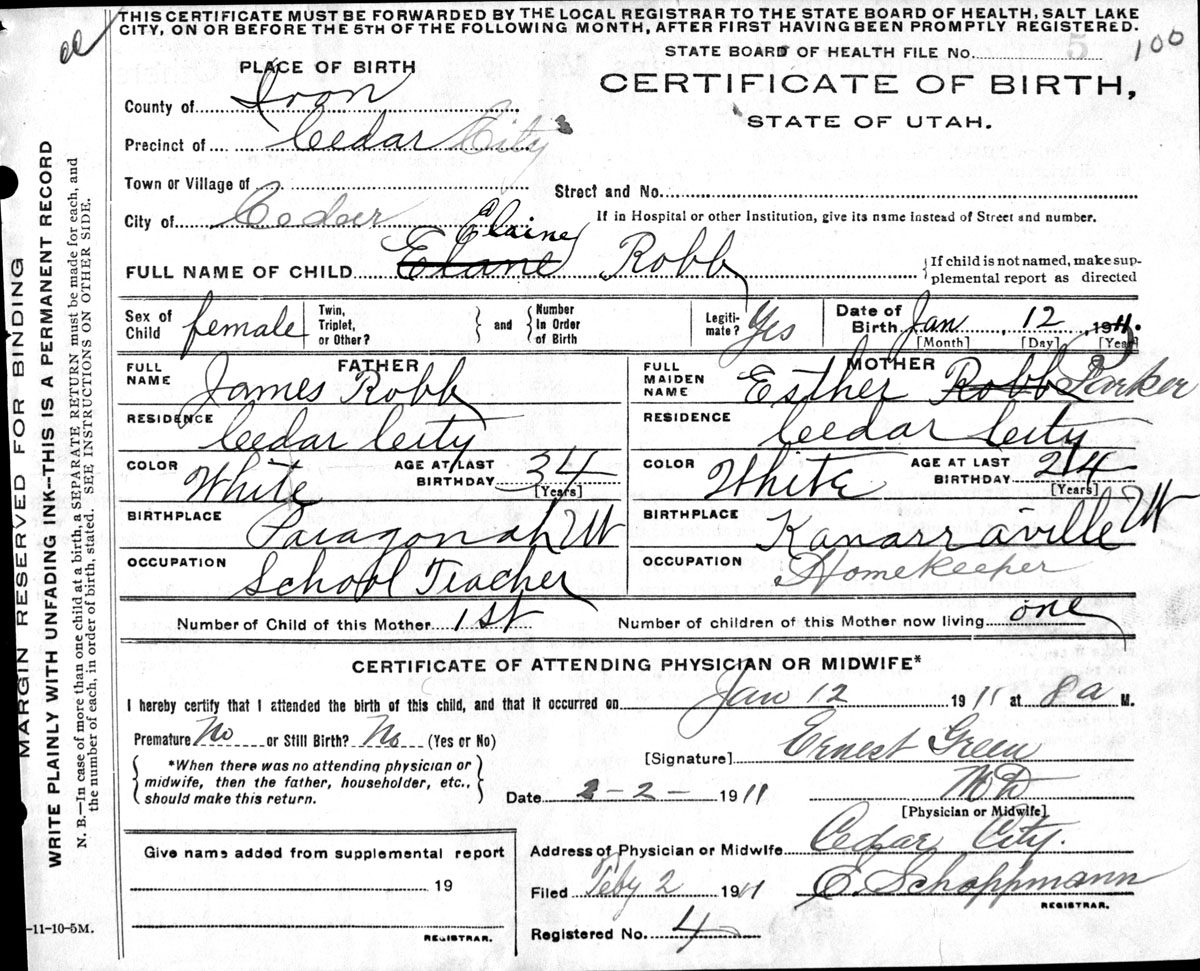 THIS CERTIFICATE MUST BE FORWARDED BY THE LOCAL REGISTRAR TO THE STATE BOARD OF HEALTH, SALT LAKE
CITY, ON OR BEFORE THE 5TH OF THE FOLLOWING MONTH, AFTER FIRST HAVING BEEN PROMPTLY REGISTERED.
STATE BOARD OF HEALTH FILE No. 100
PLACE OF BIRTH
CERTIFICATE OF BIRTH,
STATE OF UTAH.
County of Iron
Precinct of Cedar City
Town or Village of
Street and No.
City of Cedar
If in Hospital or other Institution, give its name instead of Street and number.
Elaine
FULL NAME OF CHILD Elane Robb
If child is not named, make sup-
plemental report as directed
Sex of Child female
Twin, Triplet, or Other?
and
Number In Order of Birth
Legiti-mate? Yes
Date of Birth Jan 12, 1911.
[Month] [Day] [Year]
FATHER
FULL NAME James Robb
RESIDENCE Cedar City
COLOR White AGE AT LAST BIRTHDAY 34 [Years]
BIRTHPLACE Paragonah Ut
OCCUPATION School Teacher
MOTHER
FULL MAIDEN NAME Esther Robb Parker
RESIDENCE Cedar City
COLOR White AGE AT LAST BIRTHDAY 24 [Years]
BIRTHPLACE Kanarraville Ut
OCCUPATION Homekeeper
Number of Child of this Mother 1st Number of children of this Mother now living one
CERTIFICATE OF ATTENDING PHYSICIAN OR MIDWIFE*
I hereby certify that I attended the birth of this child, and that it occurred on Jan 12 1911 at 8 a M.
Premature No or Still Birth? No (Yes or No)
*When there was no attending physician or
midwife, then the father, householder, etc.,
should make this return.
[Signature] Ernest Green
Date 2-2- 1911 M D
[Physician or Midwife]
Give name added from supplemental report
19
REGISTRAR.
Address of Physician or Midwife Cedar City.
Filed Feby 2 1911 E. Schoppmann
REGISTRAR.
Registered No. 4
-11-10-5M.
MARGIN RESERVED FOR BINDING
WRITE PLAINLY WITH UNFADING INK—THIS IS A PERMANENT RECORD
N. B.—In case of more than one child at a birth, a SEPARATE RETURN must be made for each, and
the number of each, in order of birth, stated. SEE INSTRUCTIONS ON OTHER SIDE.